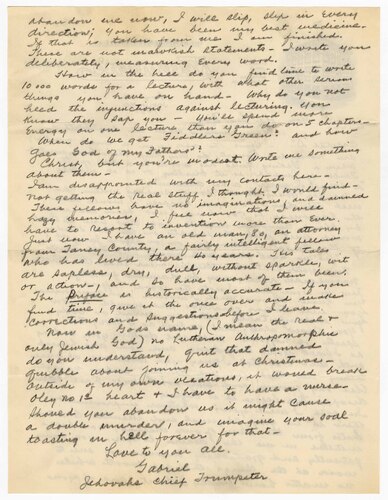 abandon me now, I will slip, slip in every
direction; you have been my best medicine.
If that is taken from me I am finished.
These are not mawkish statements - I wrote you
deliberately, measuring every word.
How in the hell do you find time to write
10 000 words for a lecture, with what other serious
things you have on hand - Why do you not
heed the injunctions against lecturing. You
know they sap you - You'll spend more
energy on one lecture than you do on 5 chapters -
When do we get Fiddlers Green? and how
goes God of my Fathers?
Christ, but you're modest. Write me something
about them -
I am disappointed with my contacts here -
Not getting the real stuff I thought I would find -
These have no imaginations and damned
hazy memories, I feel now that I will
have to resort to invention more than ever.
Just now I have an old man, 80, an attorney
from Taney County, a fairly intelligent fellow
who has lived there 40 years. His tales
are sapless, dry, dull, without sparkle, wit
or action -, and so have most of them been.
The is historically accurate - If you
find time, give it the once over and make
corrections and suggestions before I leave.
Now in Gods name, (I mean the real &
only Jewish God) no Lutheran Anthropomorphic
do you understand, quit that damned
quibble about joining us at Christmas -
Outside of my own vexations, it would break
Oley no 1s heart & I have to have a nurse -
Should you abandon us it might cause
a double murder, and imagine your soul
toasting in hell forever for that -
Love to you all.
Gabriel
Jehovahs Chief Trumpeter